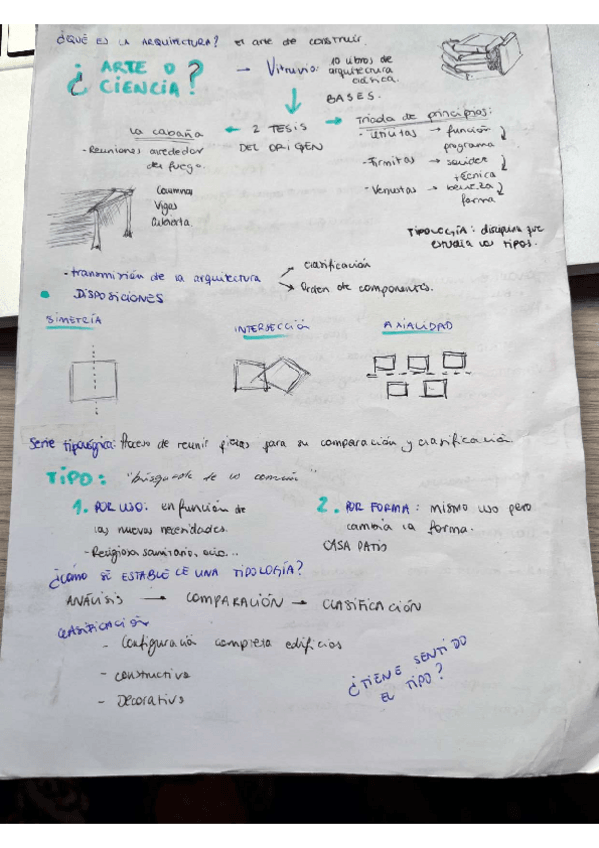 ¿QUÉ ES LA ARQUITECTURA? el arte de construir.
¿ARTE O CIENCIA?
→ Vitruvio: 10 libros de arquitectura clásica.
BASES.
la cabaña ← 2 TESIS DEL ORIGEN → Triada de principios:
- Reuniones alrededor del fuego.
- Utilitas → función programa
- Firmitas → solidez técnica
- Venustas → belleza forma
Columna
Vigas
Cubierta
TIPOLOGÍA: disciplina que estudia los tipos.
- transmisión de la arquitectura
clasificación
Orden de componentes.
DISPOSICIONES
SIMETRÍA
INTERSECCIÓN
AXIALIDAD
Serie tipológica: Proceso de reunir piezas para su comparación y clasificación
TIPO: "búsqueda de lo común"
1. POR USO: en función de las nuevas necesidades.
- Religiosa, sanitario, ocio...
2. POR FORMA: mismo uso pero cambia la forma.
CASA PATIO
¿CÓMO SE ESTABLECE UNA TIPOLOGÍA?
ANÁLISIS → COMPARACIÓN → CLASIFICACIÓN
CLASIFICACIÓN
- Configuración completa edificios
- constructiva
- Decorativa
¿TIENE SENTIDO EL TIPO?